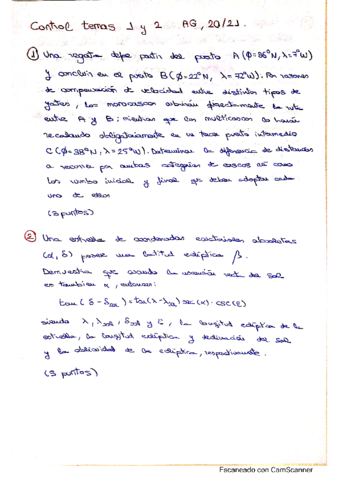 Control temas 1 y 2 AG, 20/21.
① Una regata debe partir del punto A (ϕ=36°N, λ=7°W)
y concluir en el punto B (ϕ=22°N, λ=72°W). Por razones
de compensación de velocidad entre distintos tipos de
yates, los monocascos cubrirán directamente la ruta
entre A y B; mientras que los multicascos lo harán
recalando obligatoriamente en un tercer punto intermedio
C (ϕ=38°N, λ=25°W). Determinar la diferencia de distancias
a recorrer por ambas categorías de cascos así como
los rumbos inicial y final que deben adoptar cada
uno de ellos
(5 puntos)
② Una estrella de coordenadas ecuatoriales absolutas
(α, δ) posee una latitud eclíptica β.
Demuestra que cuando la ascensión recta del Sol
es también α, entonces:
tan (δ - δsol) = tan(λ-λsol) sec(α) · csc(ε)
siendo λ, λsol, δsol y ε, la longitud eclíptica de la
estrella, la longitud eclíptica y declinación del Sol
y la oblicuidad de la eclíptica, respectivamente.
(5 puntos)
Escaneado con CamScanner